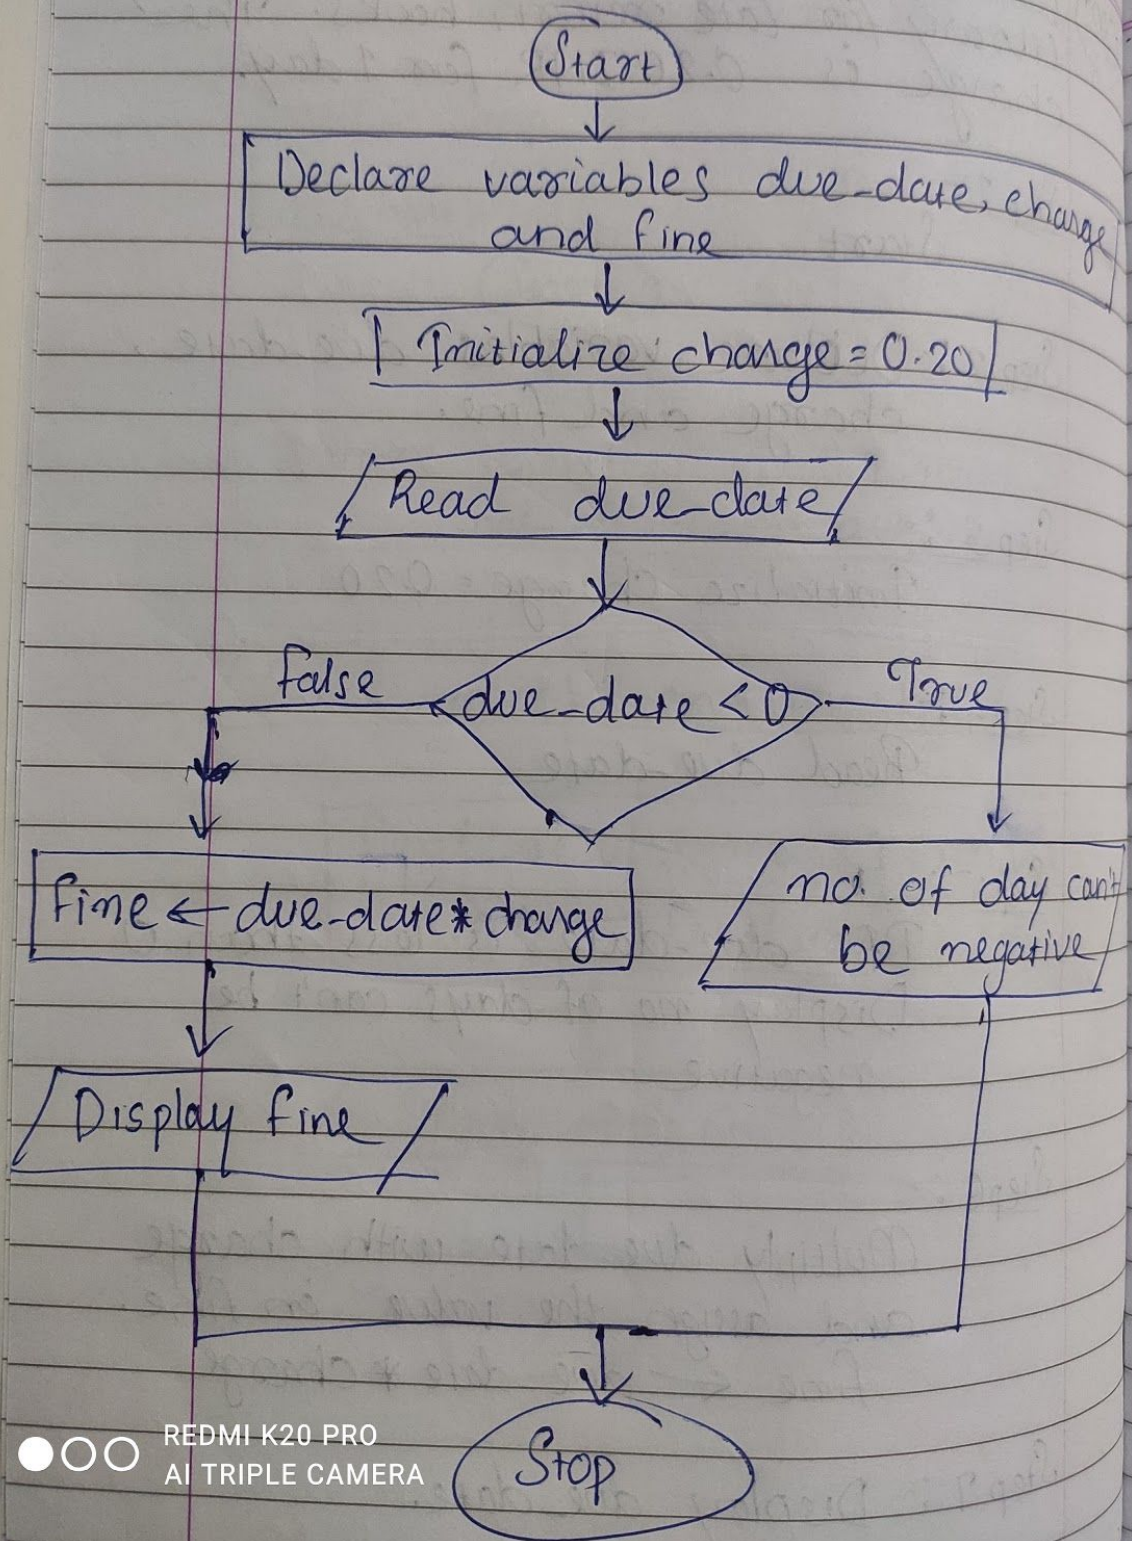 Start
Declare variables due-date, charge
and fine
Initialize charge = 0.20
Read due-date
False
due-date < 0
True
fine ← due-date * charge
no. of day can't
be negative
Display fine
Stop
REDMI K20 PRO
AI TRIPLE CAMERA